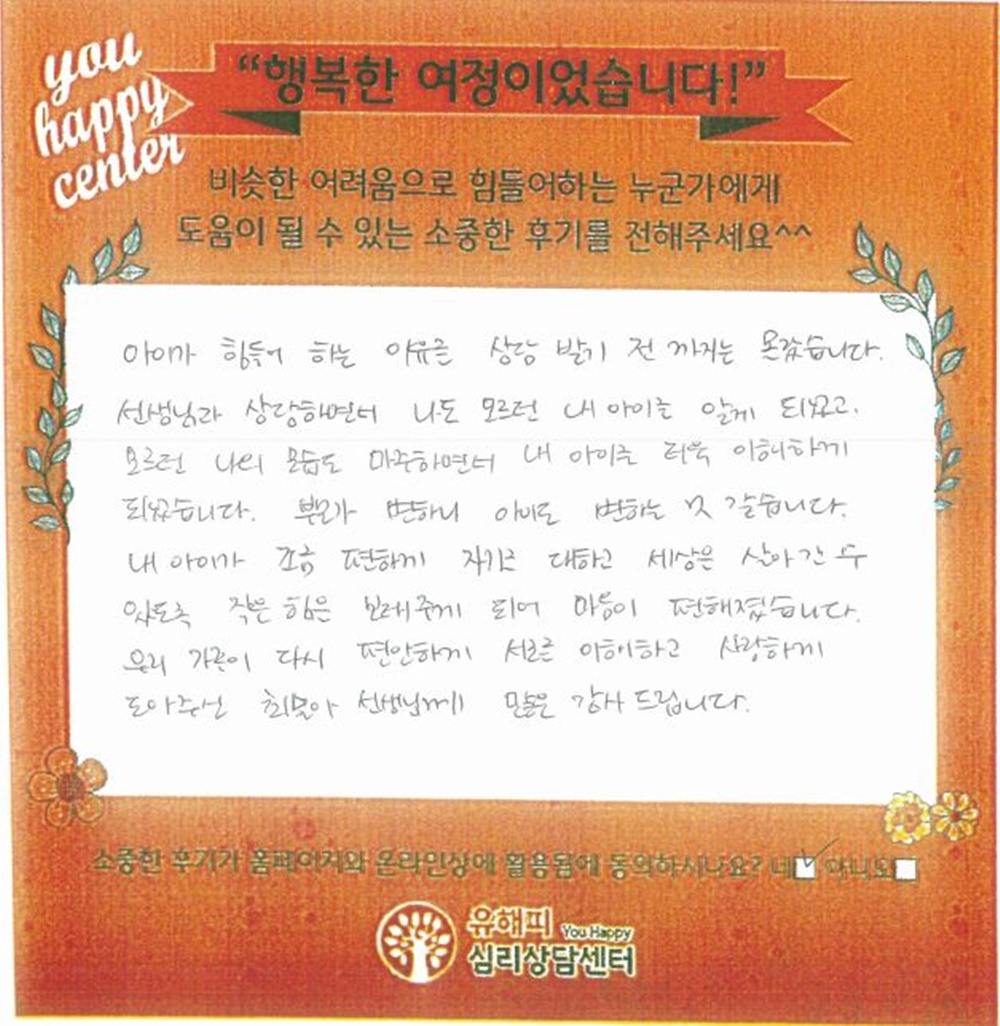 you
happy
center
“행복한 여정이었습니다!”
비슷한 어려움으로 힘들어하는 누군가에게
도움이 될 수 있는 소중한 후기를 전해주세요^^
아이가 힘들어 하는 이유를 상담 받기 전 까지는 몰랐습니다.
선생님과 상담하면서 나도 모르던 내 아이를 알게 되었고.
모르던 나의 모습도 마주하면서 내 아이를 더욱 이해하게
되었습니다. 부모가 변하니 아이도 변하는 것 같습니다.
내 아이가 조금 편하게 자기를 대하고 세상을 살아갈 수
있도록 작은 힘을 보태주게 되어 마음이 편해졌습니다.
우리 가족이 다시 편안하게 서로를 이해하고 사랑하게
도아주신 선생님께 많은 감사 드립니다.
소중한 후기가 홈페이지와 온라인상에 활용됨에 동의하시나요? 네 아니오
유해피 You Happy
심리상담센터